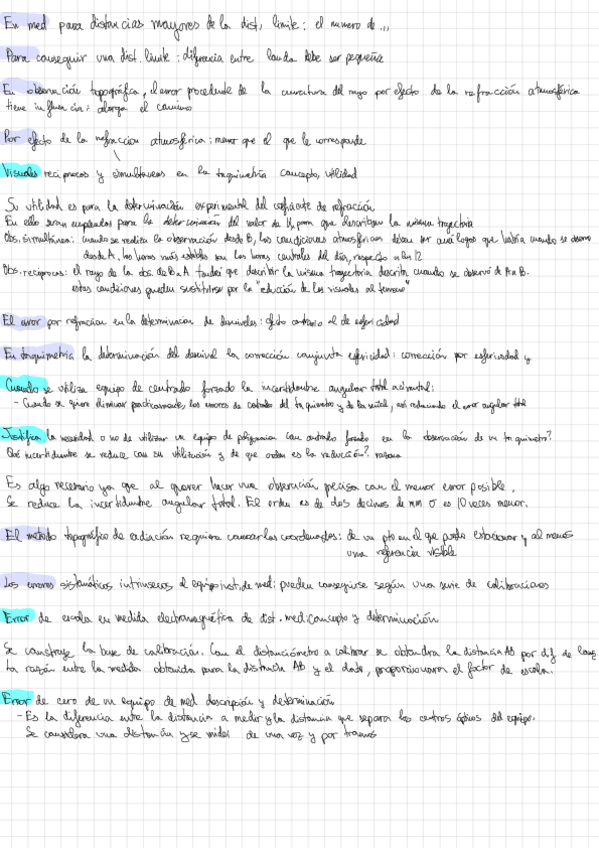 En med para distancias mayores de la dist, limite: el numero de...
Para conseguir una dist. limite: diferencia entre landa debe ser pequeña
En observación topográfica, el error procedente de la curvatura del rayo por efecto de la refracción atmosférica
tiene influencia: alarga el camino
Por efecto de la refraccion atmosférica: menor que el que le corresponde
Visuales reciprocas y simultaneas en la taquimetría concepto, utilidad
Su utilidad es para la determinación experimental del coeficiente de refracción
En ello seran empleados para la determinación del valor de K, para que describan la misma trayectoria
Obs. simultánea: cuando se realiza la observación desde B, las condiciones atmosfericas deben ser analogas que había cuando se observo
desde A. las horas más estables son las horas centrales del día, respecto a las 12
Obs. reciprocas: el rayo de la obs. de B a A tendra que describir la misma trayectoria descrita cuando se observó de A a B.
estas condiciones pueden sustituirse por la "elución de las visuales al terreno"
El error por refraccion en la determinacion de desniveles: efecto contrario al de esfericidad
En taquimetría la determinación del desnivel la corrección conjunta esfericidad: corrección por esfericidad y
Cuando se utiliza equipo de centrado forzado la incertidumbre angular total acimutal:
- Cuando se quiere eliminar practicamente, los errores de del taquimetro y de la señal, así reduciendo el error angular total
Justifica la necesidad o no de utilizar un equipo de poligonacion con centrado forzado en la observación de un taquimetro?
Qué incertidumbre se reduce con su utilización y de que orden es la reducción? razona
Es algo necesario ya que al querer hacer una observación precisa con el menor error posible.
Se reduce la incertidumbre angular total. El orden es de dos decimas de mm o es 10 veces menor.
El método topográfico de radiación requiere conocer las coordenadas: de un pto en el que pueda estacionar y al menos
una referencia visible
Los errores sistemáticos intrinsecos al equipo inst. de med: pueden conseguirse según una serie de calibraciones
Error de escala en medida electromagnética de dist. med: concepto y determinación
Se construye la base de calibración. Con el distanciómetro a calibrar se obtendra la distancia AB por dif de long
La razón entre la medida obtenida para la distancia AB y el dado, proporcionara el factor de escala.
Error de cero de un equipo de med descripción y determinación
- Es la diferencia entre la distancia a medir y la distancia que separa los centros ópticos del equipo.
Se considera una distancia y se mide de una vez y por tramos